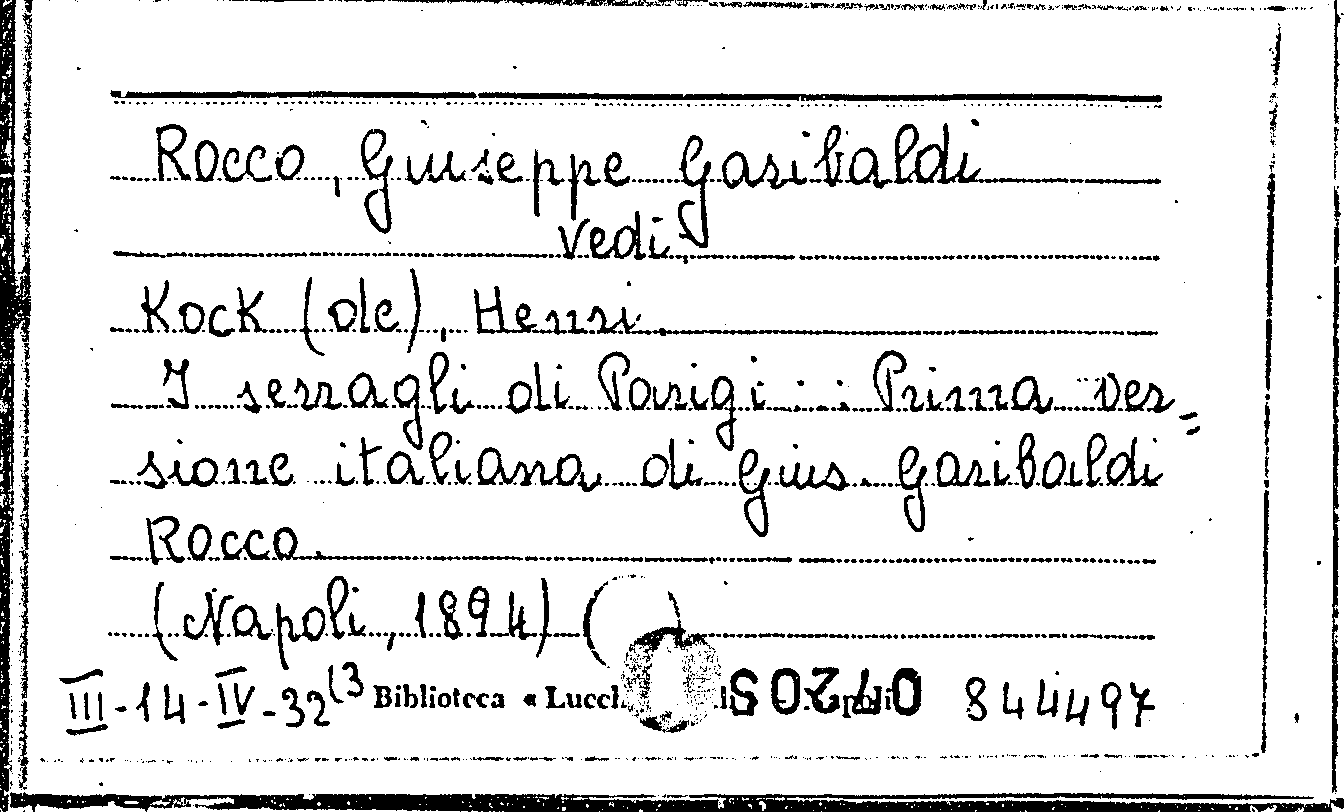 Rocco, Giuseppe Garibaldi
vedi
Kock (de), Henri.
I serragli di Parigi ... Prima ver=
sione italiana di Gius. Garibaldi
Rocco.
(Napoli, 1894)
III-14-IV-32(3 Biblioteca « 844497